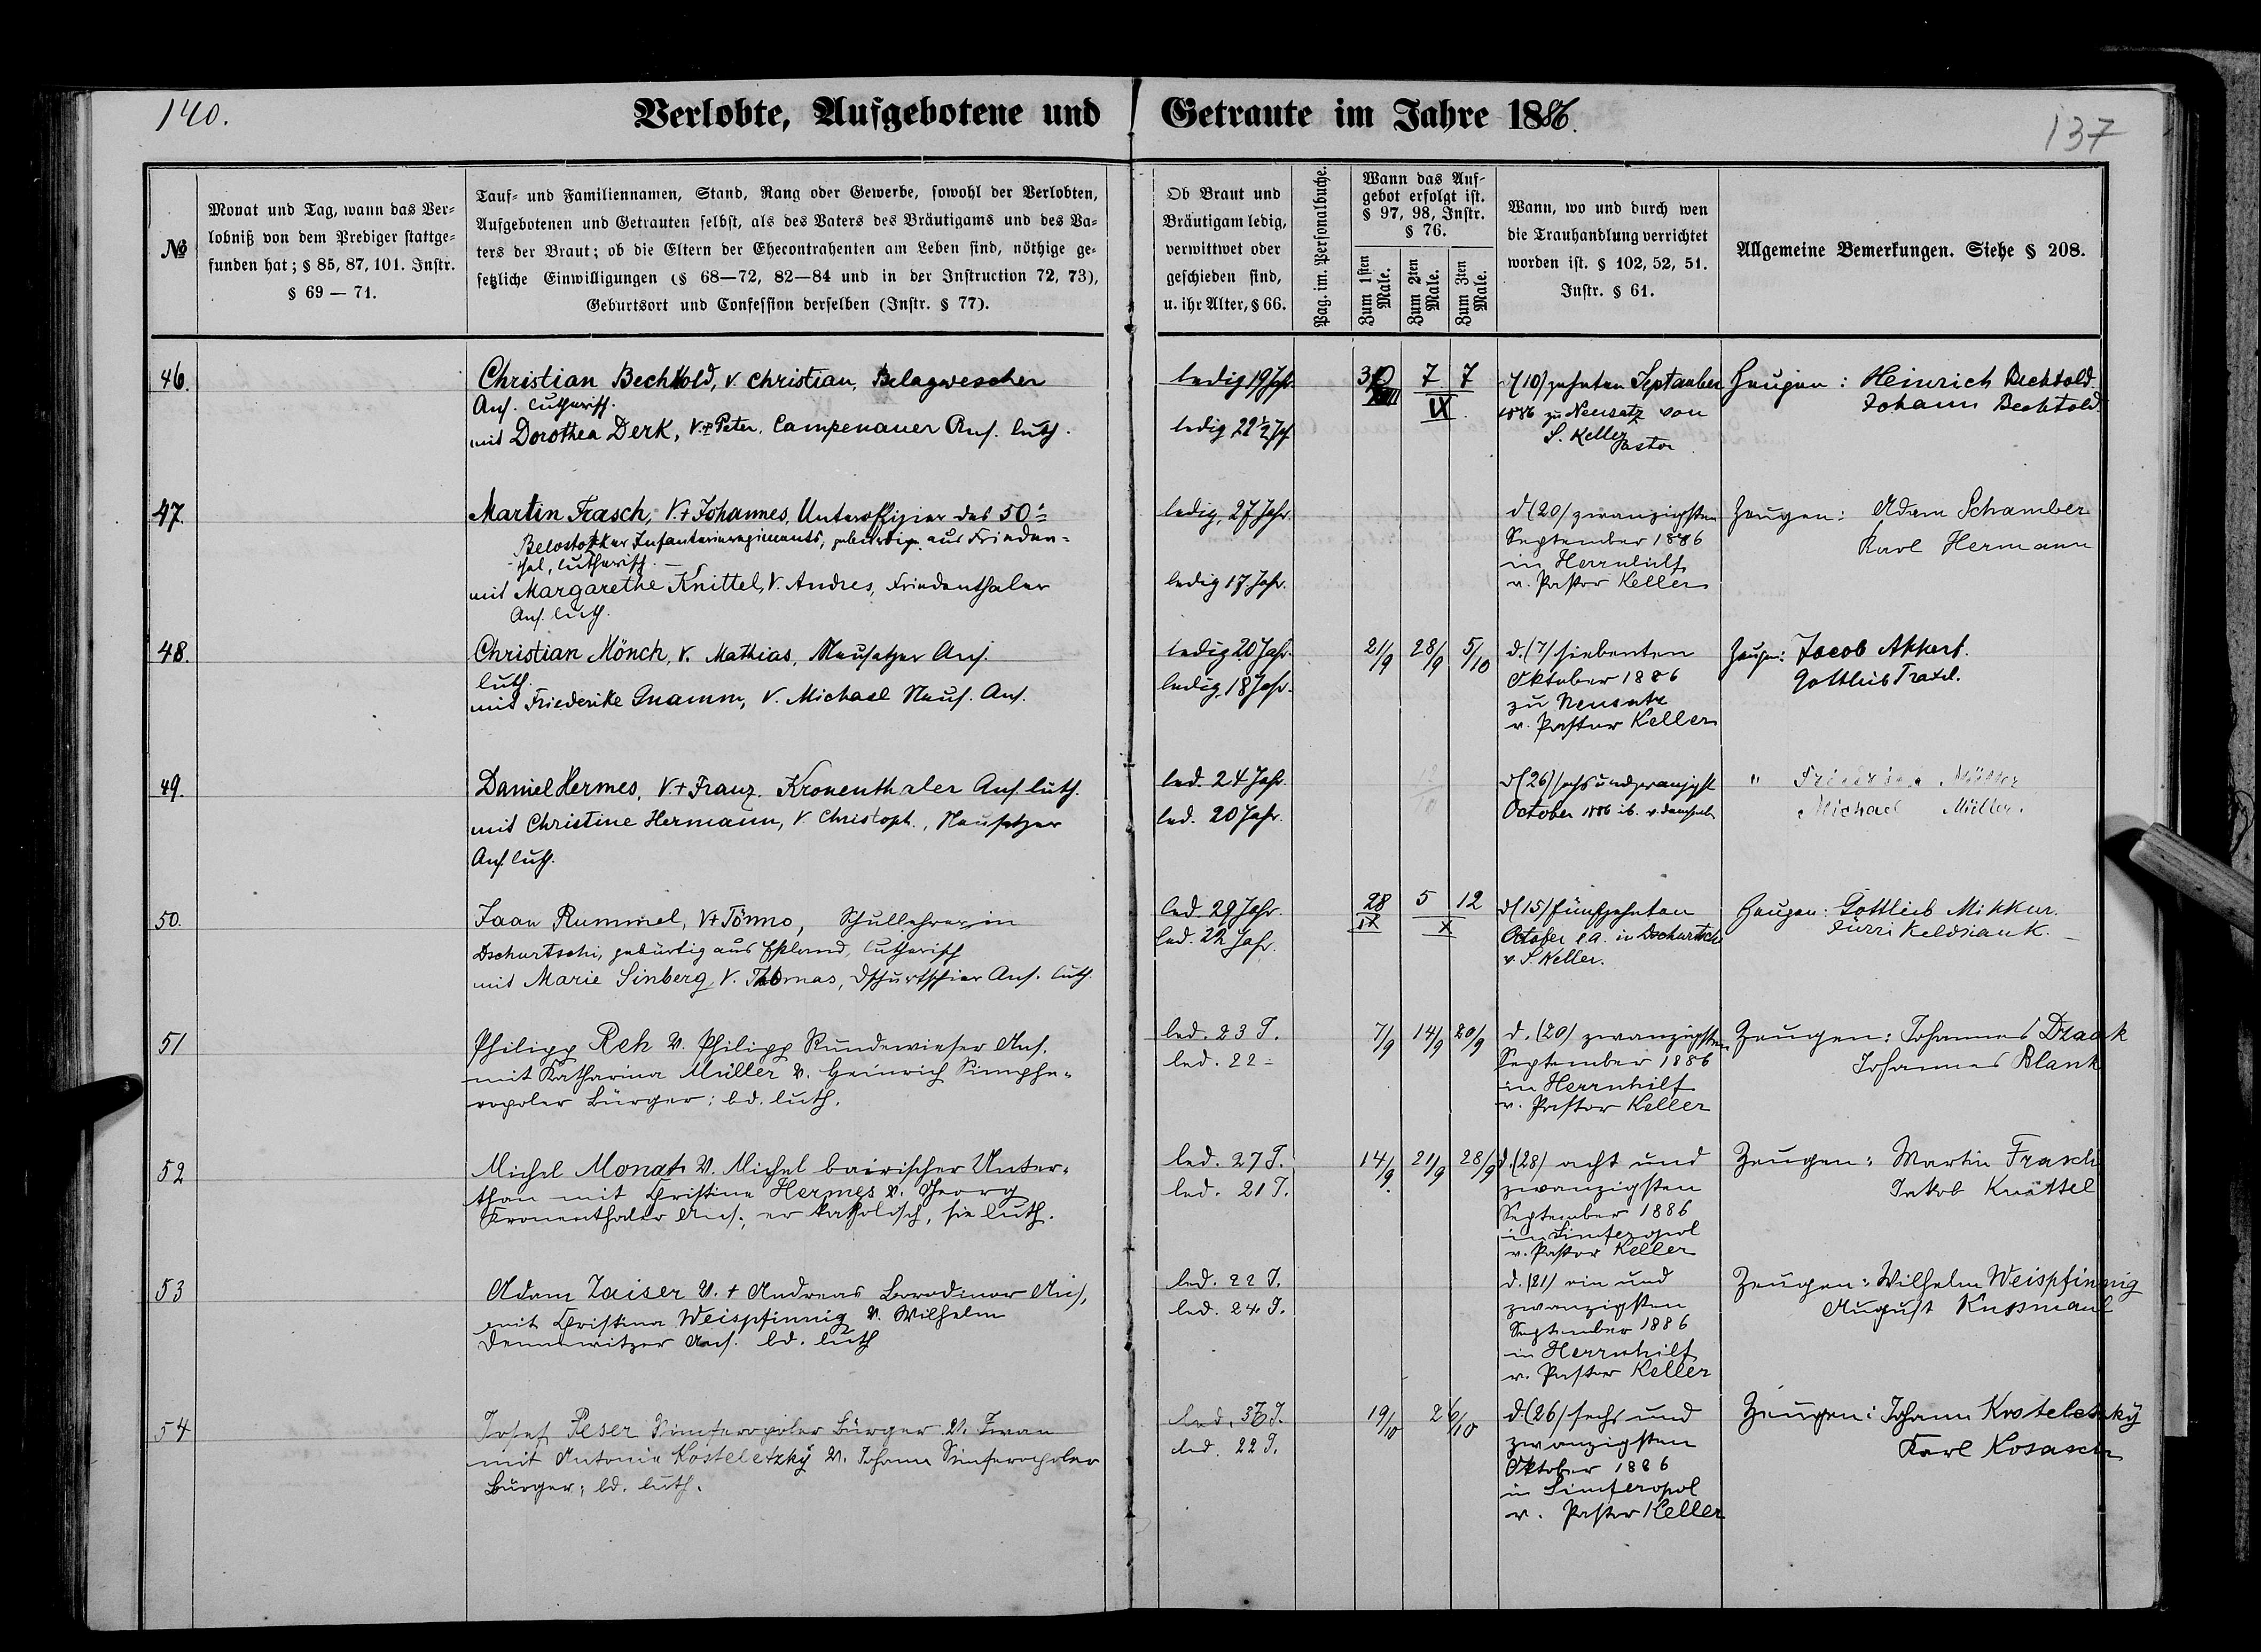 140.
Verlobte, Aufgebotene und Getraute im Jahre 1886.
137
№
Monat und Tag, wann das Ver-
lobniß von dem Prediger stattge-
funden hat; § 85, 87, 101. Instr.
§ 69 — 71.
Tauf- und Familiennamen, Stand, Rang oder Gewerbe, sowohl der Verlobten,
Aufgebotenen und Getrauten selbst, als des Vaters des Bräutigams und des Va-
ters der Braut; ob die Eltern der Ehecontrahenten am Leben sind, nöthige ge-
setzliche Einwilligungen (§ 68—72, 82—84 und in der Instruction 72, 73),
Geburtsort und Confession derselben (Instr. § 77).
Ob Braut und
Bräutigam ledig,
verwittwet oder
geschieden sind,
u. ihr Alter, § 66.
Pag. im. Personalbuche.
Wann das Auf-
gebot erfolgt ist.
§ 97, 98, Instr.
§ 76.
Zum 1sten
Male.
Zum 2ten
Male.
Zum 3ten
Male.
Wann, wo und durch wen
die Trauhandlung verrichtet
worden ist. § 102, 52, 51.
Instr. § 61.
Allgemeine Bemerkungen. Siehe § 208.
46.
Christian Bechtold, V. Christian,
Ans. lutherisch.
mit Dorothea Derk, V. + Peter. Campenauer Ans. luth.
ledig 19 Jahr.
ledig 22½ J
7 7
IX
d (10) zehnten September
1886 zu Neusatz von
S. Keller
Pastor
Zeugen: Heinrich Bechtold.
Johann Bechtold.
47.
Martin Frasch, V. + Johannes, Unteroffizier des 50ᵗ
Belostokker Infanterieregiments, gebürtig aus Frieden-
thal, lutherisch. —
mit Margarethe Knittel, V. Andres, Friedenthaler
Ans. luth.
ledig, 27 Jahr.
ledig 17 Jahr.
d (20) zwanzigsten
September 1886
in Herrnhilf
v. Pastor Keller
Zeugen: Adam Schamber
Karl Hermann
48.
Christian Mönch, V. Mathias, Neusatzer Ans.
luth.
mit Friederike Gnamm, V. Michael Neus. Ans.
ledig 20 Jahr.
ledig, 18 Jahr.
21/9 28/9 5/10
d. (7) siebenten
Oktober 1886
zu Neusatz
v. Pastor Keller
Zeugen: Jacob Akkert.
Gottlieb Traxel.
49.
Daniel Hermes, V. + Franz. Kronenthaler Ans. luth.
mit Christine Hermann, V. Christoph., Neusatzer
Ans. luth.
led. 24 Jahr.
led. 20 Jahr.
d (26) sechsundzwanzigst
October 1886 ib. v. demselb
" Müller
Michael Müller.
50.
Jaan Rummel, V + Tönno, Schullehrer in
Dschurtschi, gebürtig aus Estland, lutherisch
mit Marie Sinberg, V. Thomas, Dschurtschier Ans. luth.
led. 29 Jahr.
led. 22 Jahr.
28 5 12
IX X
d (15) fünfzehnten
October l.a. in Dschurtschi
v S. Keller.
Zeugen: Gottlieb Mikkur.
Jürri Keldriauk. —
51
Philipp Reh V. Philipp Rundewieser Ans.
mit Katharina Müller V. Heinrich Simphe-
ropoler Bürger; bd. luth.
led. 23 J.
led. 22 =
7/9 14/9 20/9
d. (20) zwanzigsten
September 1886
in Herrnhilf
v. Pastor Keller
Zeugen: Johannes Dzaak
Johannes Blank
52
Michel Monats V. Michel bairischer Unter-
than mit Christine Hermes V. Georg
Kronenthaler Ans.; er katholisch, sie luth.
led. 27 J.
led. 21 J.
14/9 21/9 28/9
d. (28) acht und
zwanzigsten
September 1886
in Simferopol
v. Pastor Keller
Zeugen: Martin Frasch
Jakob Knittel
53
Adam Zaiser V. + Andreas Borodinoer Ans,
mit Christina Weispfinnig V. Wilhelm
Dennewitzer Ans. bd. luth
led. 22 J.
led. 24 J.
d. (21) ein und
zwanzigsten
September 1886
in Herrnhilf
v. Pastor Keller
Zeugen: Wilhelm Weispfinnig
August Kußmaul
54
Josef Peser Simferopoler Bürger V. Iwan
mit Antonie Kosteletzky V. Johann Simferopoler
Bürger; bd. luth.
led. 36 J.
led. 22 J.
19/10 26/10
d (26) sechs und
zwanzigsten
Oktober 1886
in Simferopol
v. Pastor Keller
Zeugen: Johann Kosteletzky
Karl Kosasch